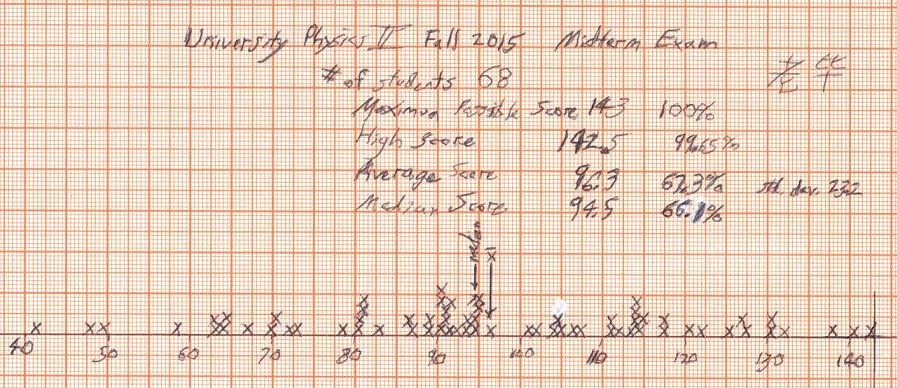 University Physics II Fall 2015 Midterm Exam
# of students 68
Maximum Possible Score 143 100%
High Score 142.5 99.65%
Average Score 96.3 67.3% std. dev. 23.2
Median Score 94.5 66.1%
median x̄
40 50 60 70 80 90 100 110 120 130 140